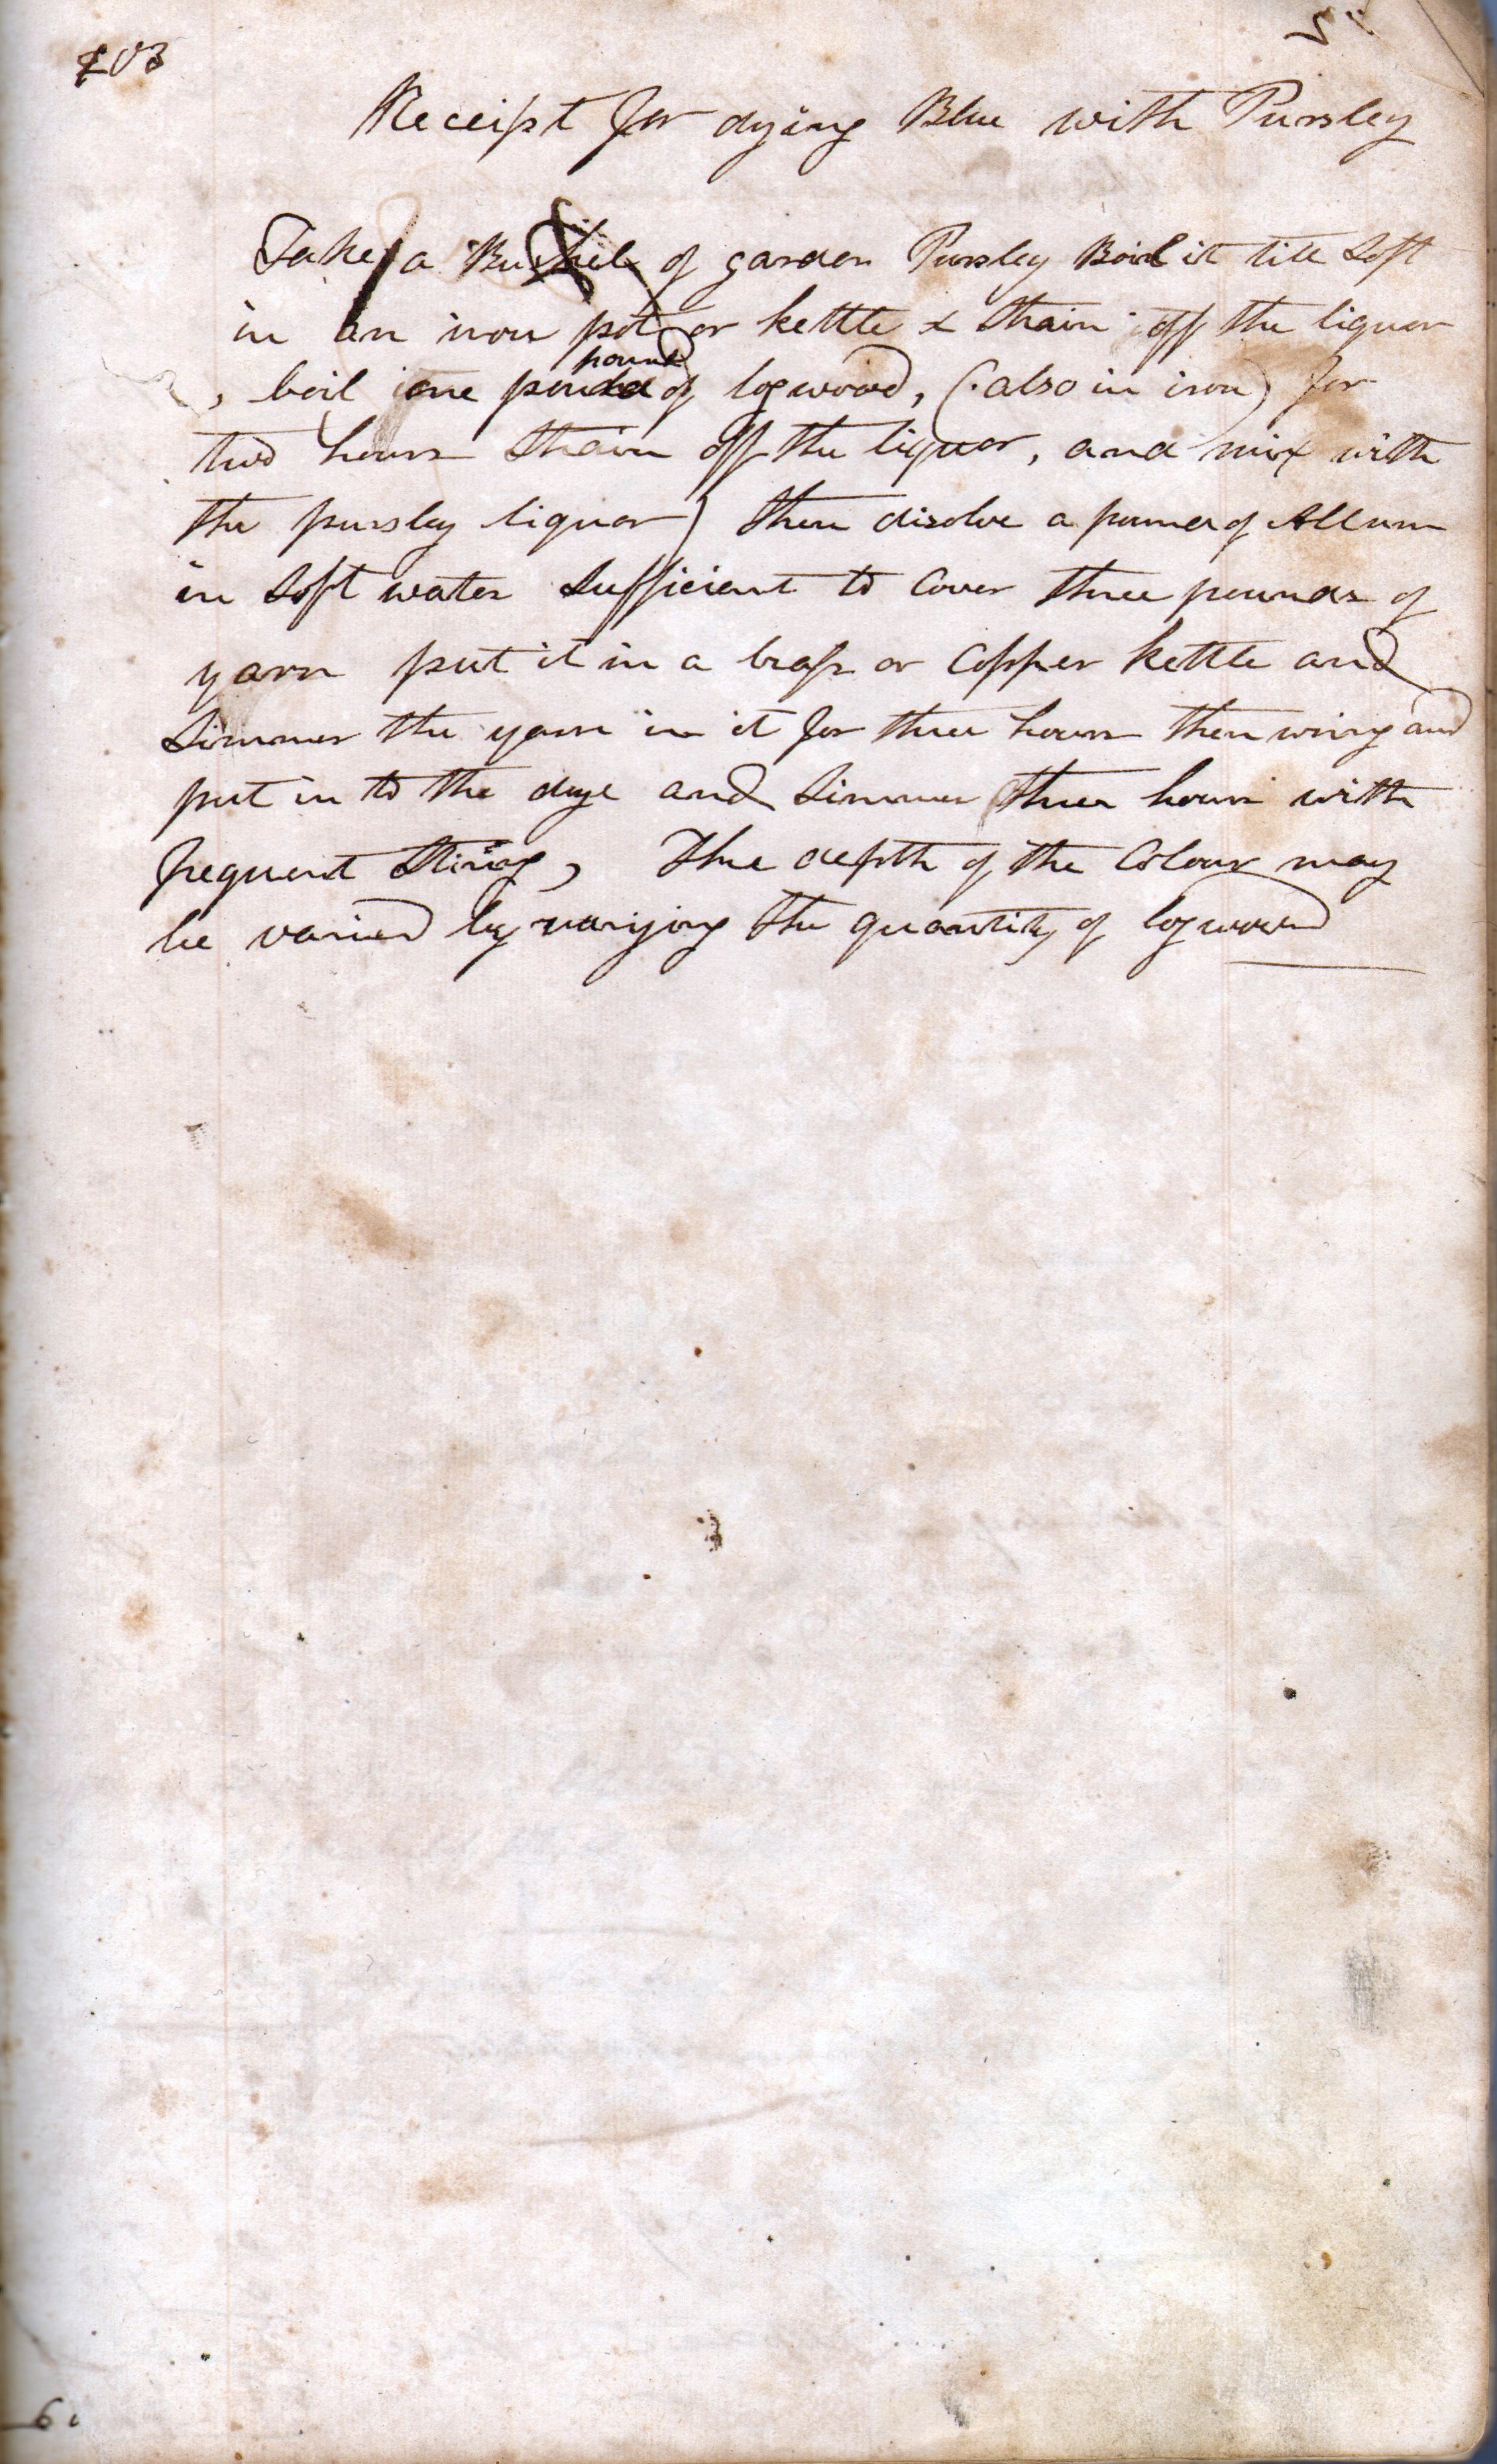 203
Receipt for dying Blue with Pursley
Take a Bushel of garden Pursley Boil it till soft
in an iron pot or kettle & strain off the liquor
pound
, boil one pound of logwood, (also in iron) for
two hours strain off the liquor, and mix with
the pursley liquor) then disolve a pound of Allum
in soft water sufficient to cover three pounds of
yarn put it in a brass or Copper kettle and
Simmer the yarn in it for three hours then wring and
put in to the dye and Simmer three hours with
frequent Stiring, The depth of the Colour may
be varied by varying the quantity of logwood